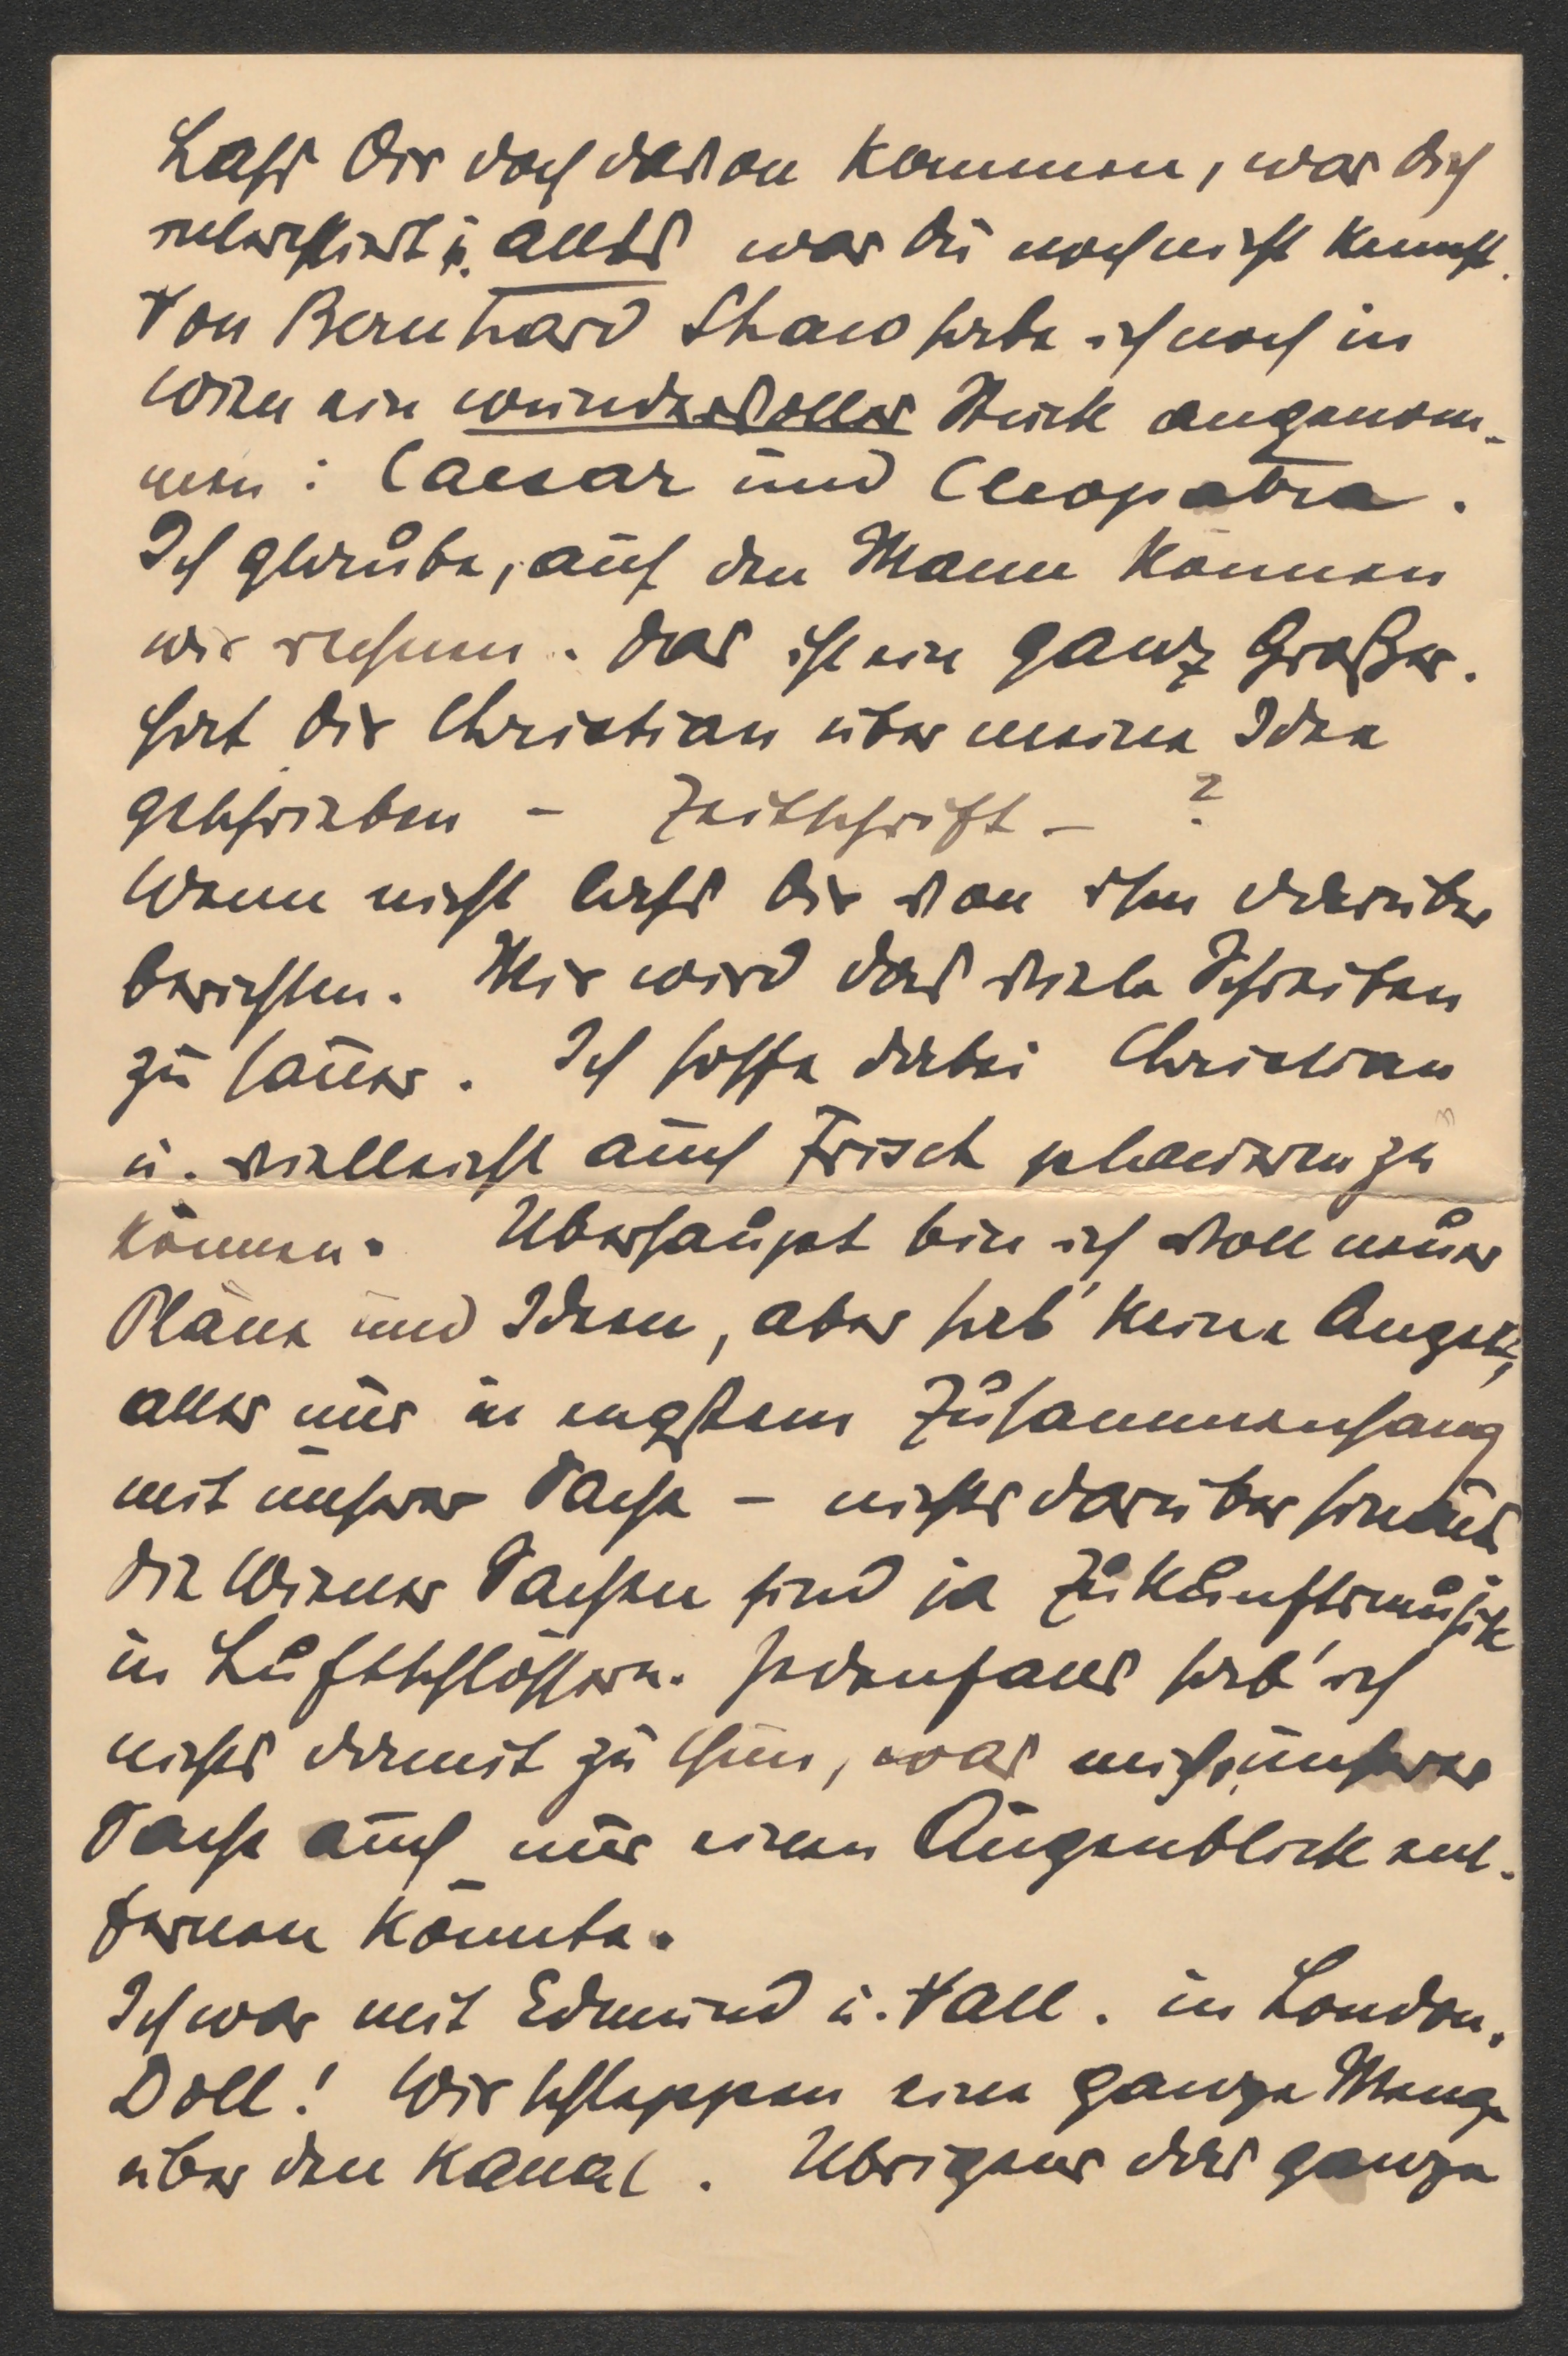 Lass Dir doch davon kommen, was Dich
interessiert u. alles was Du noch nicht kennst.
Von Bernhard Shaw habe ich noch in
Wien ein wundervolles Stück angenom-
men: Caesar und Cleopatra.
Ich glaube, auf den Mann können
wir rechnen. Das ist ein ganz Großer.
Hat Dir Christian über meine Idee
geschrieben – Zeitschrift – ?
Wenn nicht lass Dir von ihm darüber
berichten. Mir wird das viele Schreiben
zu sauer. Ich hoffe dabei Christian
u. vielleicht auch Frisch placieren zu
können. Überhaupt bin ich voll neuer
Pläne und Ideen, aber hab' keine Angst,
alles nur in engstem Zusammenhang
mit unserer Sache – nichts darüber hinaus
Die Wiener Sachen sind ja Zukunftsmusik
in Luftschlössern. Jedenfalls hab' ich
nichts damit zu thun, was mich unserer
Sache auch nur einen Augenblick ent-
fernen könnte.
Ich war mit Edmund u. Vall. in London.
Doll! Wir schleppen eine ganze Menge
über den Kanal. Übrigens das ganze